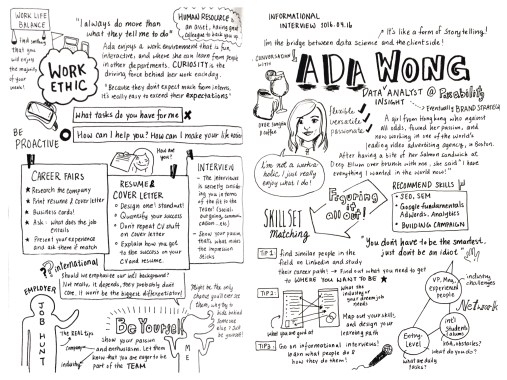 WORK LIFE
BALANCE
Find something
that you
will enjoy
the majority
of your
time!
"I always do more than
what they tell me to do"
HUMAN RESOURCE =
an asset, having good
colleague to back you up
Ada enjoys a work environment that is fun,
interactive, and where she can learn from people
in other departments. CURIOSITY is the
driving force behind her work everyday.
WORK
ETHIC
"Because they don't expect much from interns,
it's really easy to exceed their expectations"
What tasks do you have for me
BE
PROACTIVE
How can I help you? How can I make your life easier
How are you?
CAREER FAIRS
Research the company
Print resume & cover letter
Business cards!
Ask - what does the job entails
Present your experience
and ask them if match
RESUME &
COVER LETTER
Design one! Standout!
Quantify your success
Don't repeat CV stuff
on cover letter
Explain how you got
to the success on your
CV and resume.
INTERVIEW
- The interviewer
is secretly considering
you in terms
of the fit to the
team! (social,
outgoing, communication
.. etc.)
- Show your passion
that's what makes
the impression
sticks
international
Should we emphasize our int'l background?
Not really, it depends, they probably don't
care. It won't be the biggest differentiator!
EMPLOYER
JOB
HUNT
The REAL tips
Company
Industry
Be Yourself
Show your passion
and enthusiasm. Let them
know that you are eager to be
part of the TEAM
Might be the only
chance you'll ever
see them, why
hide behind
someone
else? Sell
yourself!
ME
INFORMATIONAL
INTERVIEW 2016.04.16
It's like a form of storytelling!
I'm the bridge between data science and the client side!
CONVERSATION
WITH
ADA WONG
DATA ANALYST @ Possibility
INSIGHT
Eventually BRAND STRATEGY
over sangria
& coffee
flexible
versatile
passionate
A girl from Hong Kong who against
all odds, found her passion, and
now working in one of the world's
leading video advertising agency, in Boston.
After having a bite of her Salmon sandwich at
Deep Ellum over brunch with me, she said "I have
everything I wanted in the world now!"
I'm not a workaholic,
I just really
enjoy what I do!
Figuring
it all out!
RECOMMEND SKILLS
SEO, SEM
Google fundamentals
AdWords, Analytics
BUILDING CAMPAIGN
SKILLSET
Matching
"You don't have to be the smartest.
just don't be an idiot"
TIP 1: find similar people in the
field on Linkedin and study
their career path! → Find out what you need to get
to WHERE YOU WANT TO BE
TIP 2:
What the
industry or
your dream job
needs
what you are good at
Map out your skills,
and design your
learning path
TIP 3: Go on informational interviews!
learn what people do &
how they do them!
VP, Mng,
experienced
people
industry
challenges
Network
int'l
students
alumni
visa, obstacles?
what do you do?
Entry-
Level
What are daily
tasks?